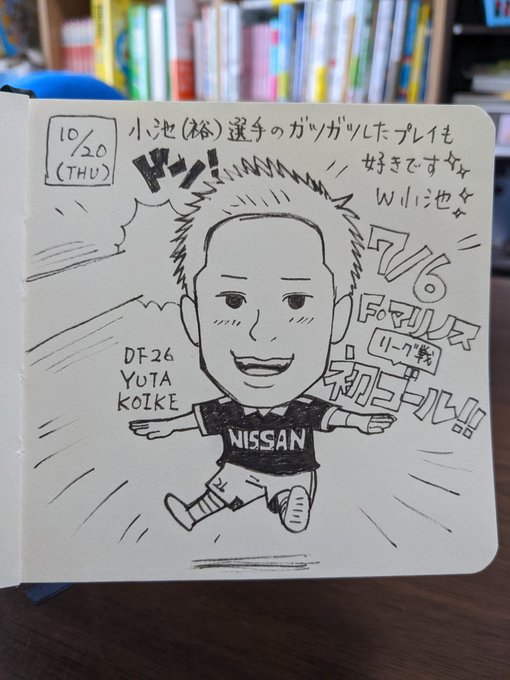 10/20
(THU)
小池(裕)選手のガツガツしたプレイも
好きです
W小池
ドン!
7/6
F・マリノス
リーグ戦
初ゴール!!
DF26
YUTA
KOIKE
NISSAN